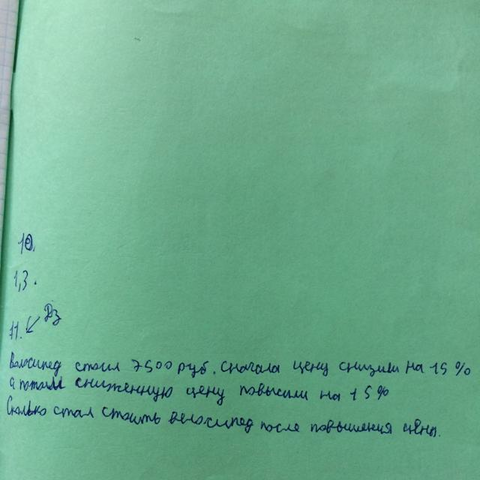 10.
1,3.
11. Дз
Велосипед стоил 7500 руб. сначала цену снизили на 15%
а потом сниженную цену повысили на 15%
Сколько стал стоить велосипед после повышения цены.